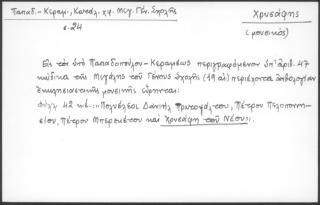 Παπαδ.-Κεραμ., Κατάλ. χφ. Μεγ. Γέν. Σχολῆς
σ. 24
Χρυσάφης
(μουσικός)
Εἰς τὸν ὑπὸ Παπαδοπούλου-Κεραμέως περιγραφόμενον ὑπ' ἀριθ. 47
κώδικα τῆς Μεγάλης τοῦ Γένους Σχολῆς (19 αἰ.) περιέχοντα ἀνθολογίαν
ἐκκλησιαστικῆς μουσικῆς εὕρηται:
Φύλλ. 42 κἑ.: «Πολυέλεοι Δανιὴλ Πρωτοψάλτου, Πέτρου Πελοποννη-
σίου, Πέτρου Μπερεκέτου καὶ Χρυσάφη τοῦ Νέου».